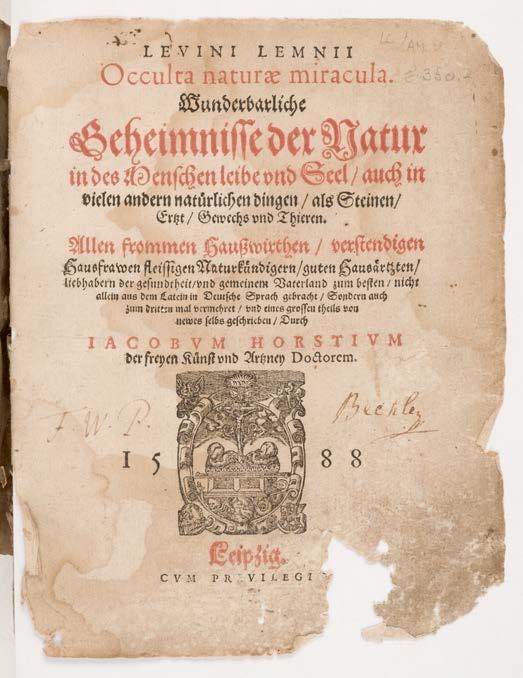 LEVINI LEMNII
Occulta naturæ miracula.
Wunderbarliche
Geheimnisse der Natur
in des Menschen leibe vnd Seel / auch in
vielen andern natürlichen dingen / als Steinen /
Ertzt / Gewechs vnd Thieren.
Allen frommen Haußwirthen / verstendigen
Hausfrawen fleissigen Naturkündigern / guten Hausärtzten /
liebhabern der gesundtheit / vnd gemeinem Vaterland zum besten / nicht
allein aus dem Latein in Deutsche Sprach gebracht / Sondern auch
zum dritten mal vermehret / vnd eines grossen theils von
newes selbs geschrieben / Durch
IACOBVM HORSTIVM
der freyen Künst vnd Artzney Doctorem.
F. W. P.
15 88
Leipzig.
CVM PRIVILEGI